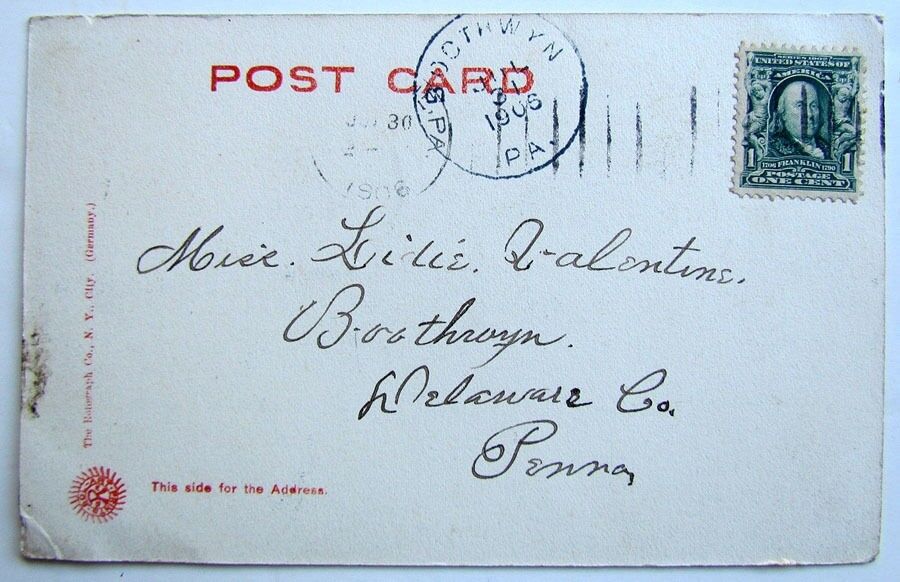 POST CARD
BOOTHWYN
1906
PA
30
PA
1906
SERIES 1902
UNITED STATES OF
AMERICA
1 1706 FRANKLIN 1790 1
POSTAGE
ONE CENT
Miss. Lidie. Valentine.
Boothwyn.
Delaware Co.
Penna,
The Rotograph Co., N. Y. City. (Germany.)
This side for the Address.